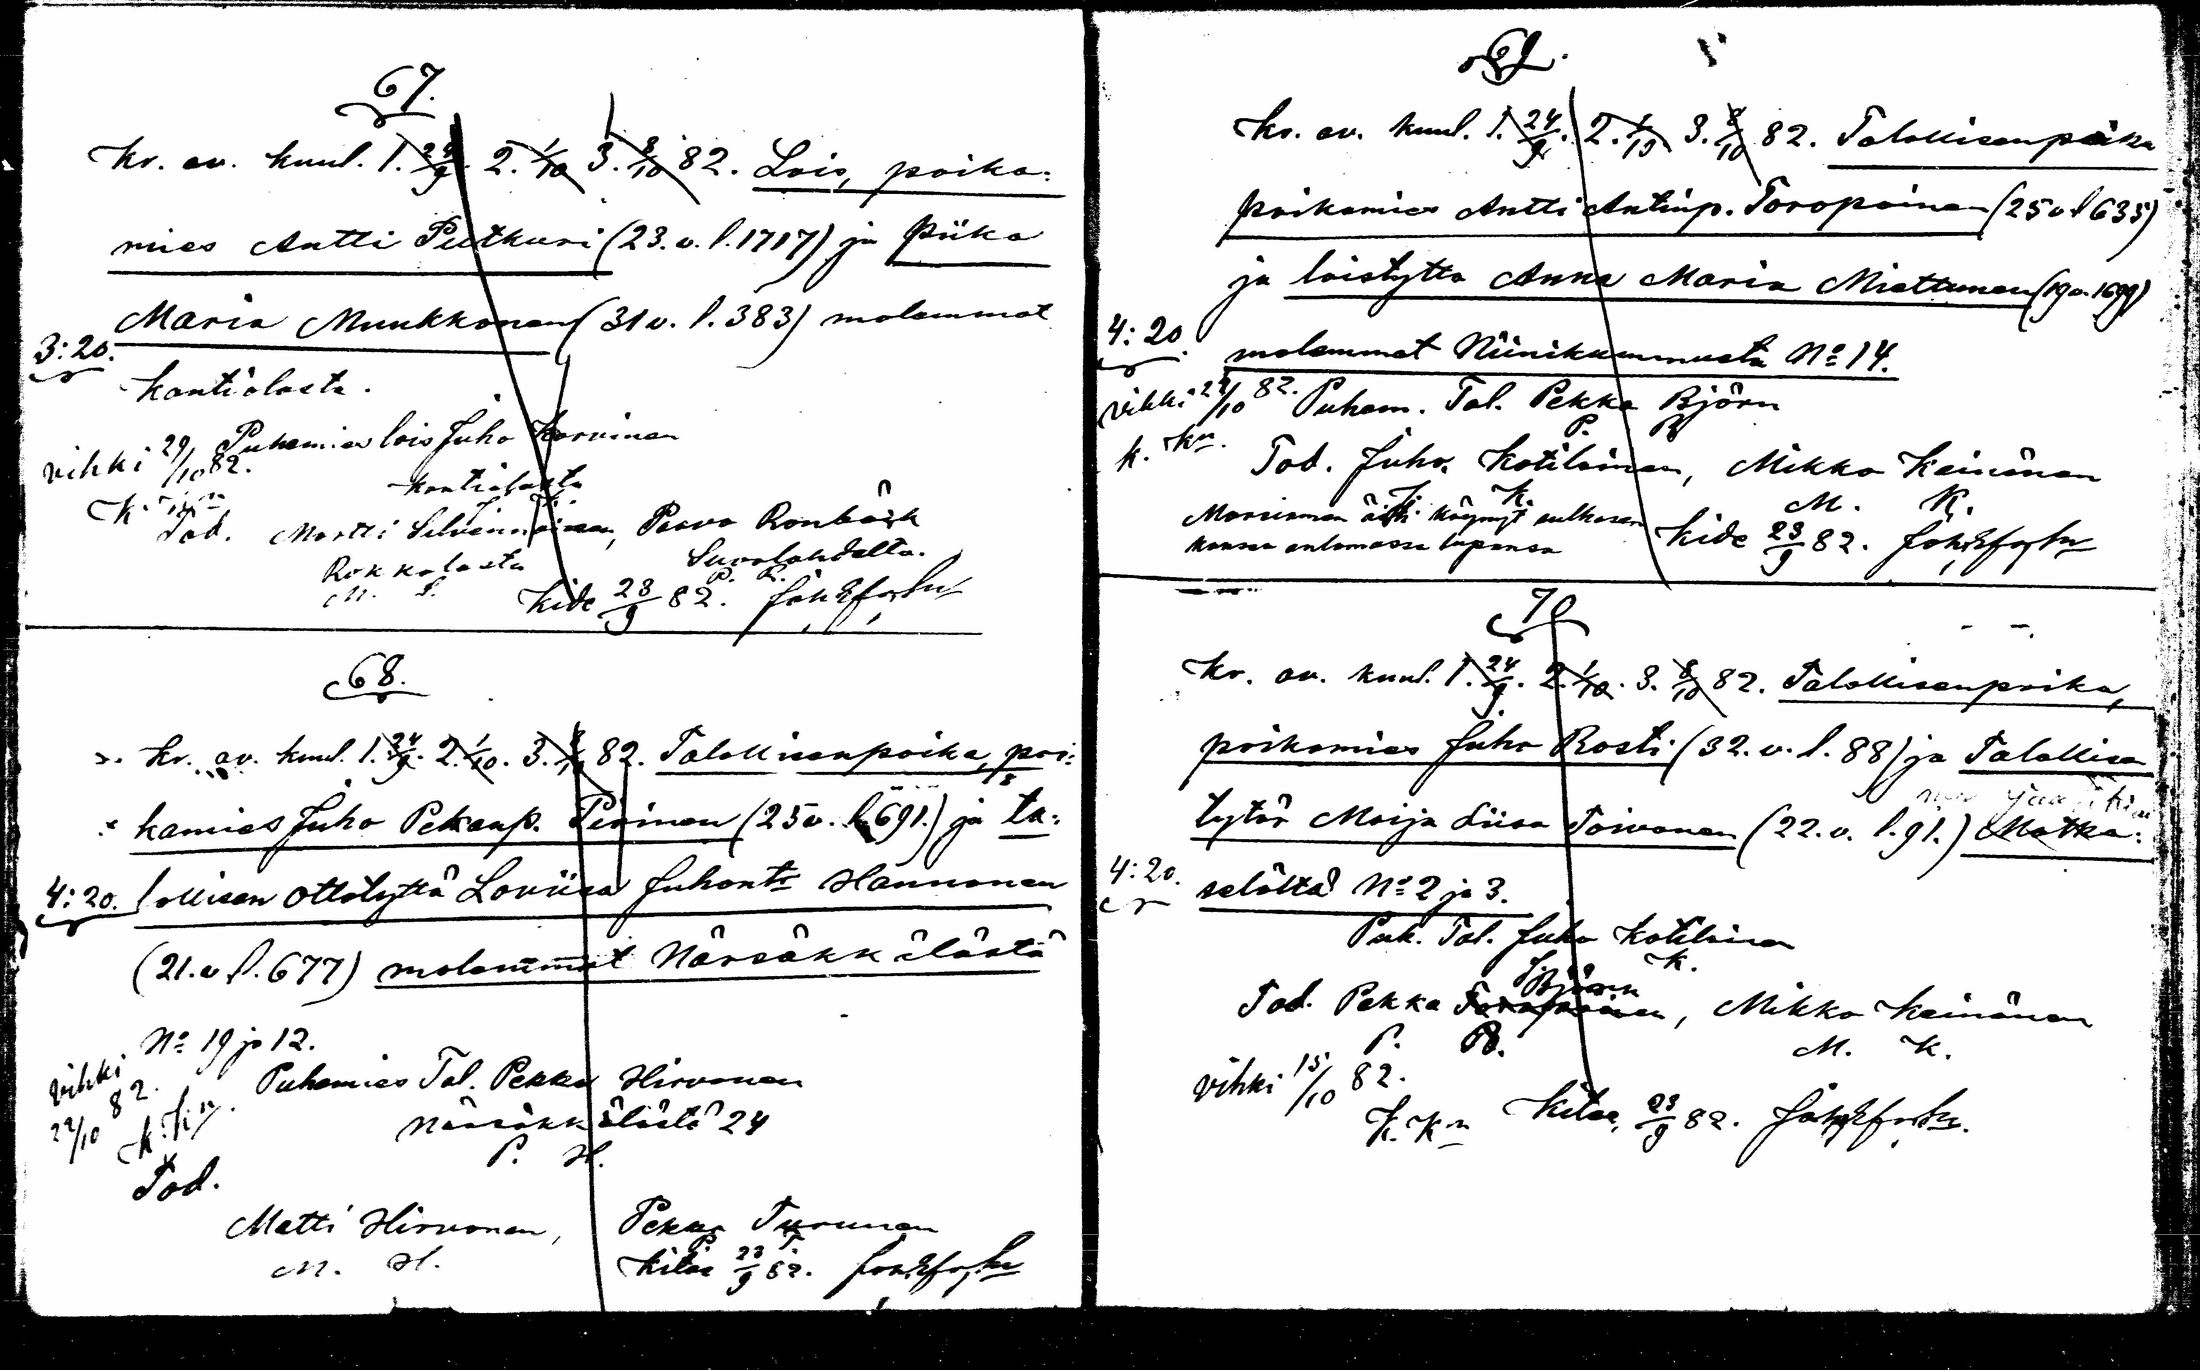 67.
Kr. av. kuul. 1. 24/9. 2. 1/10 3. 8/10 82. Lois, poika-
mies Antti Putkuri (23. v. l. 1717) ja piika
Maria Muukkonen (31 v. l. 383) molemmat
3:20.
Kontiolasta.
Puhemies lois Juho Korvinen
vihki 29/10 82.
Kontiolasta
Tod. Martti Silvennoinen, Paavo Ronbäck
Rokkalasta Suvolahdelta.
M. S. P. R.
Kide 23/9 82.
68.
Kr. av. kuul. 1. 24/9. 2. 1/10. 3. 8/10 82. Talollisenpoika, poi-
kamies Juho Pekanp. Pirinen (25 v. l. 691.) ja ta-
4:20. lollisen ottotyttö Loviisa Juhont. Hannonen
(21. v l. 677) molemmat Närsäkkälästä
No 19 ja 12.
vihki 22/10 82.
Puhemies Tal. Pekka Hirvonen
Närsäkkälästä 24
P. H.
Tod.
Matti Hirvonen, Pekka Turunen
M. H. P. T.
Kitee 23/9 82.
69.
Kr. av. kuul. 1. 24/9. 2. 1/10 3. 8/10 82. Talollisenpoika
poikamies Antti Antinp. Toropainen (25 v l 635)
ja loistyttö Anna Maria Miettunen (19 v. 1699)
4:20
molemmat Niinikummusta No 14.
vihki 22/10 82. Puhem. Tal. Pekka Björn
P. B.
K. Kn.
Tod. Juho Kotilainen, Mikko Keinänen
J. K. M. K.
Morsiamen äiti käynyt sulhasen
kanssa antamassa lupansa
Kide 23/9 82.
70
Kr. av. kuul. 1. 24/9. 2. 1/10. 3. 8/10 82. Talollisenpoika,
poikamies Juho Rosti (32. v. l. 88) ja Talollisen
tytär Maija Liisa Toivonen (22. v. l. 91.) Matka-
4:20. selältä No 2 ja 3.
Puh. Tal. Juho Kotilainen
J. K.
Björn
Tod. Pekka Toropainen, Mikko Keinänen
P. B. M. K.
vihki 15/10 82.
K. Kn Kitee, 23/9 82.